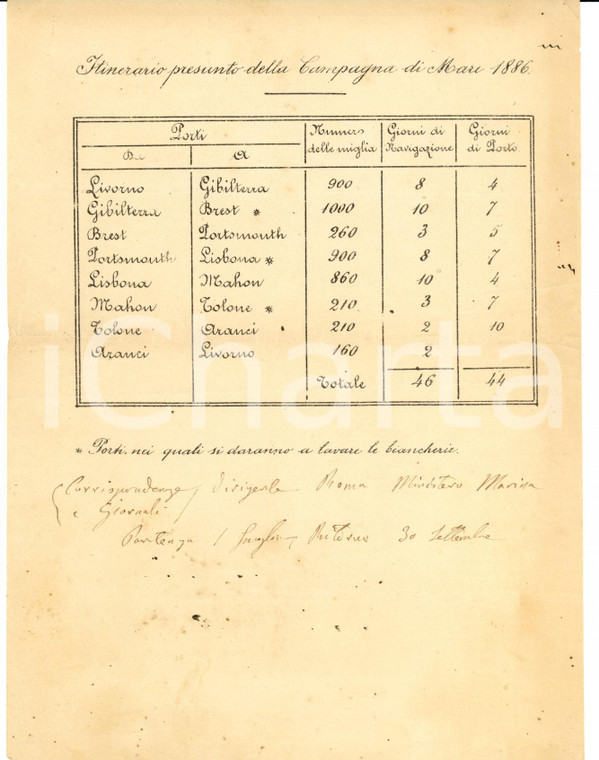 Itinerario presunto della Campagna di Mare 1886.
Porti Numero delle miglia Giorni di Navigazione Giorni di Porto
Da A
Livorno Gibilterra 900 8 4
Gibilterra Brest * 1000 10 7
Brest Portsmouth 260 3 5
Portsmouth Lisbona * 900 8 7
Lisbona Mahon 860 10 4
Mahon Tolone * 210 3 7
Tolone Aranci 210 2 10
Aranci Livorno 160 2
Totale 46 44
iCharta
* Porti nei quali si daranno a lavare le biancherie.
Corrispondenze dirigerle Roma Ministero Marina
e Giornali
Partenza 1 Luglio Ritorno 30 Settembre